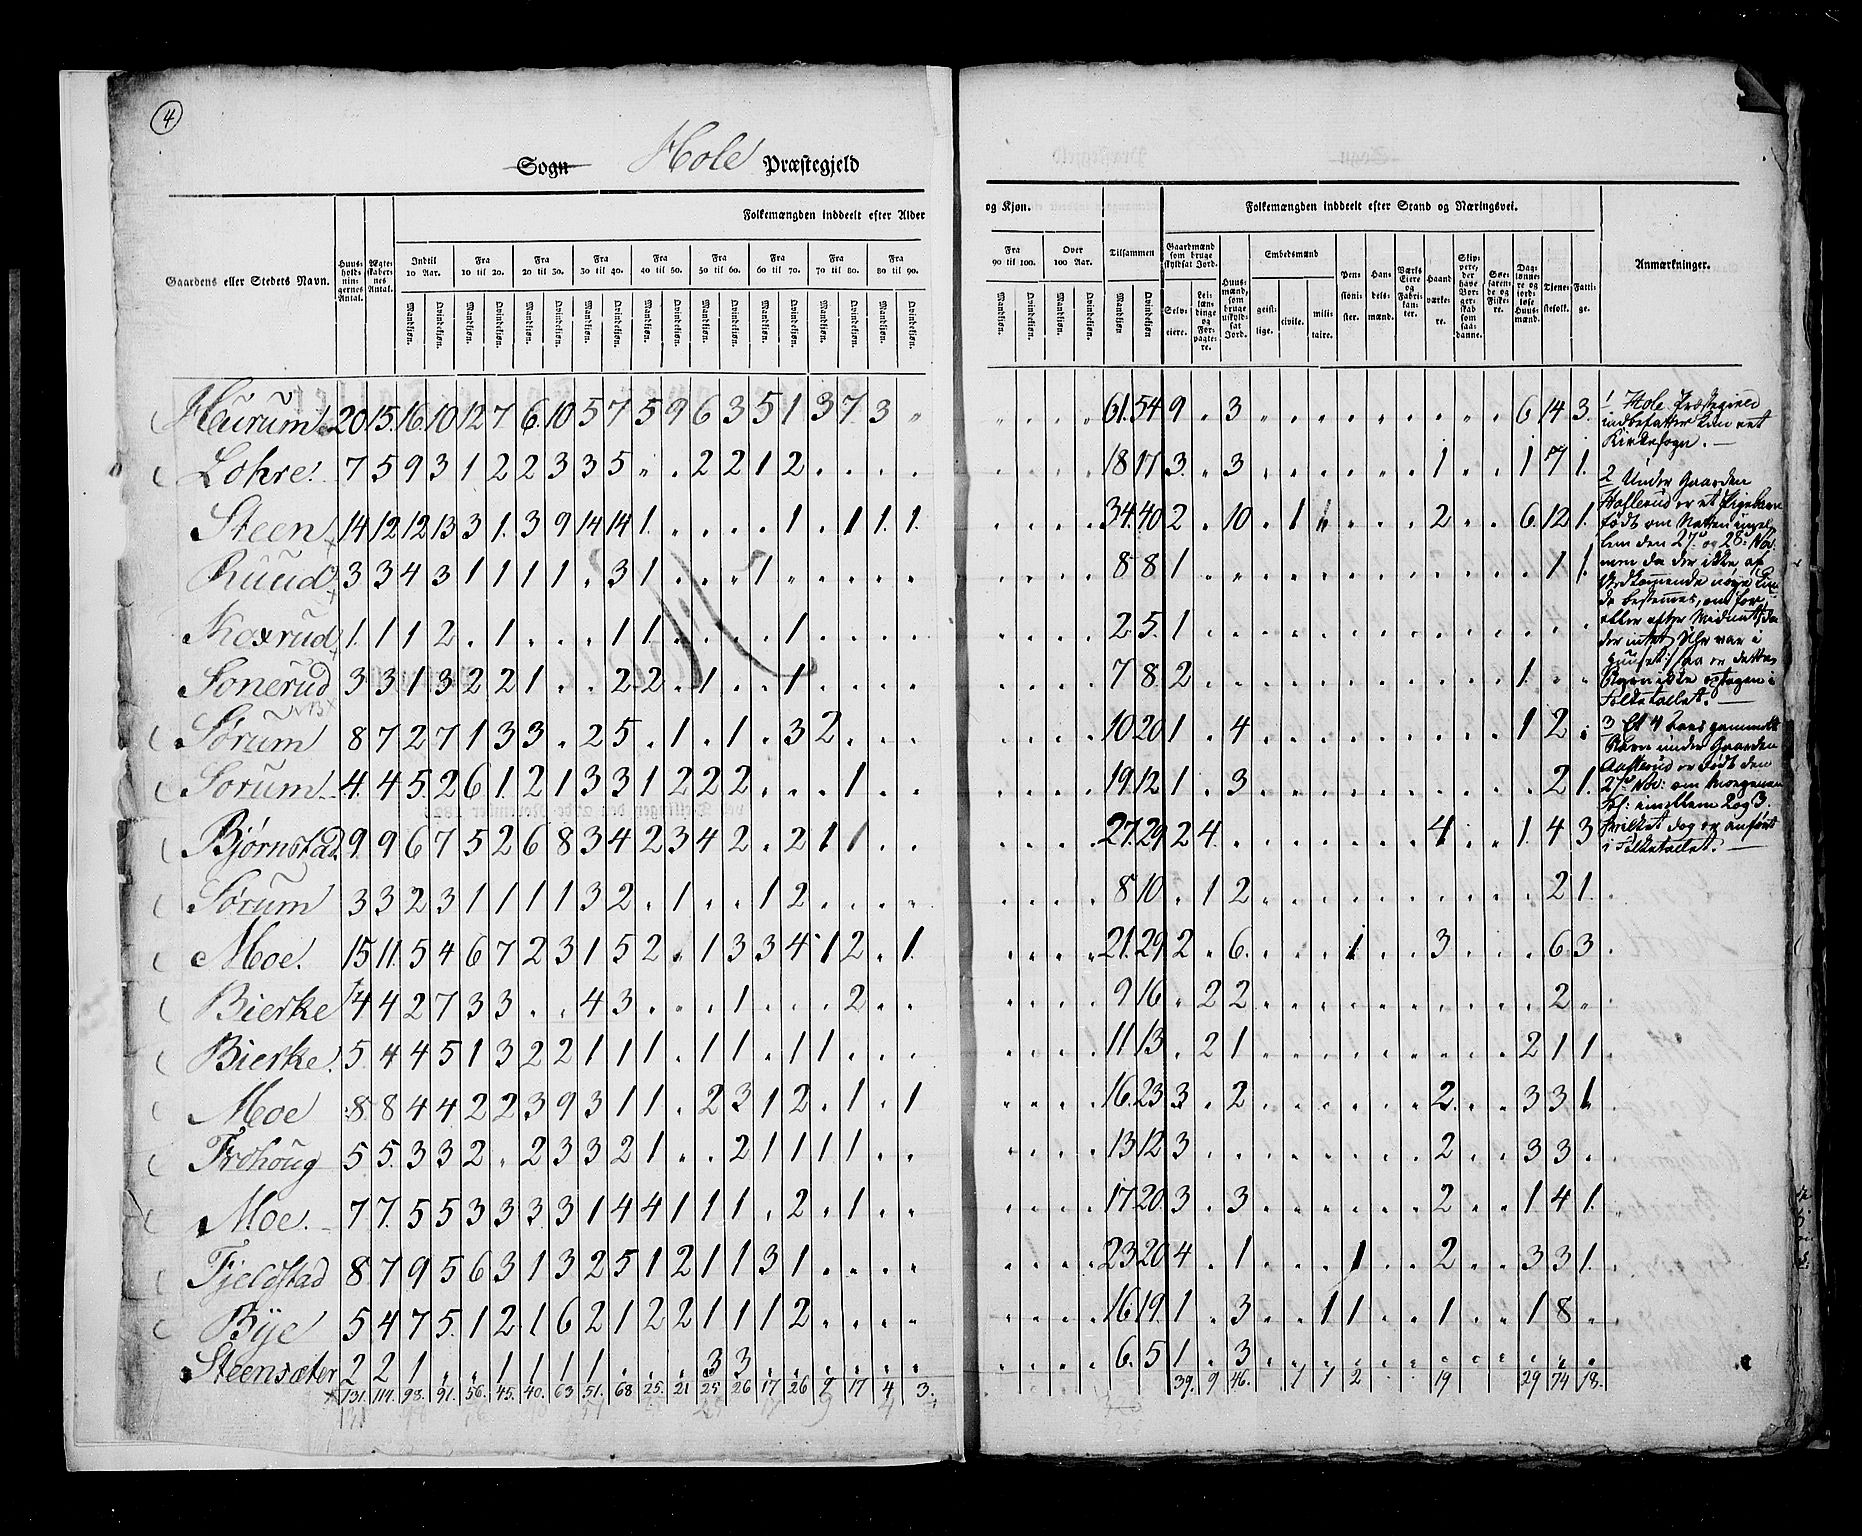 4
Sogn Hole Præstegjeld
Folkemængden inddeelt efter Alder
og Kjøn.
Folkemængden inddeelt efter Stand og Næringsvei.
Gaardens eller Stedets Navn. Huusholdningernes Antal. Ægteskabernes Antal. Indtil 10 Aar. Fra 10 til 20. Fra 20 til 30. Fra 30 til 40. Fra 40 til 50. Fra 50 til 60. Fra 60 til 70. Fra 70 til 80. Fra 80 til 90. Fra 90 til 100. Over 100 Aar. Tilsammen
Mandkiøn. Qvindekiøn. Mandkiøn. Qvindekiøn. Mandkiøn. Qvindekiøn. Mandkiøn. Qvindekiøn. Mandkiøn. Qvindekiøn. Mandkiøn. Qvindekiøn. Mandkiøn. Qvindekiøn. Mandkiøn. Qvindekiøn. Mandkiøn. Qvindekiøn. Mandkiøn. Qvindekiøn. Mandkiøn. Qvindekiøn. Mandkiøn. Qvindekiøn.
Gaardmænd som bruge skyldsat Jord. Selveiere. Leilændinge og Forpagtere. Huusmænd, som bruge uskyldsat Jord. Embedsmænd geistlige. civile. militaire. Pensionister. Handelsmænd. Værks Eiere og Fabrikanter. Haandværkere. Skippere, der have Borgerskab som saadanne. Søefarende og Fiskere. Daglønnere og jordløse Huusmænd. Tjenestefolk. Fattige. Anmærkninger.
Haurum 20 15. 16. 10 12 7 6. 10 5 7 5 9 6 3 5 1 3 7. 3 „ . . . . 61. 54 9 . 3 . . . . . . . . . 6 14 3.
Lohre. 7 5 9 3 1 2 2 3 3 5 . . 2 2 1 2 . . . . . . . . 18 17 3 . 3 . . . . . . 1 . . 1 7 1.
Steen 14 12 12 13 3 1. 3 9 14 14 1. . . . . 1 . 1 1. 1. . . . . 34. 40 2 . 10 . 1 . . . 2 . . 6. 12 1.
Ruud 3 3 4 3 1 1 1 1 . 3 1 . . . 1 . . . . . . . . . 8 8 1 . . . . . . . . . . . . 1 1.
Koxrud 1. 1 1 2 . 1 . . . 1 1 . . . . 1 . . . . . . . . 2. 5. 1 . . . . . . . . . . . . . .
Sonerud 3 3 1 3 2 2 1 . . 2 2 . 1 . . 1 . . . . . . . . 7 8. 2 . . . . . . . . . . . 1. . .
Sørum 8 7 2 7 1 3 3 . 2 5 . 1 . 1 . 3 2 . . . . . . . 10 20 1 . 4 . . . . . . . . . 1 2 .
Sorum 4. 4 5. 2 6 1. 2 1 3 3 1 2 2 2 . . . 1 . . . . . . 19. 12 1 . 3 . . . . . . . . . . 2 1.
Bjørnstad 9. 9 6 7 5 2 6 8 3 4 2 3 4 2 . 2 1 1 . . . . . . 27. 29 2 4 . . . . . . . 4 . . 1. 4 3
Sørum 3 3 2 3 1 1 1 1 3 2 . 1 . . 1 2 . . . . . . . . 8 10 . 1 2 . . . . . . . . . . 2 1.
Moe. 15 11. 5 4 6 7 2 3 1 5 2 . 1 3 3 4 1 2 . 1. . . . . 21. 29 2 . 6. . . . 1 . . 3 . . . 6 3
Bierke 4 4 2 7 3 3 . . 4 3 . . . 1 . . . 2 . . . . . . 9 16 . 2 2 . . . . . . . . . . 2 .
Bierke. 5 4 4 5 1 3 2 2 1 1 1 . 1 1 . 1 1 . . . . . . . 11 13 . 2 1 . . . . . . . . . 2 1 1
Moe 8 8 4 4 2 2 3 9 3 1 1 . 2 3 1 2 . 1 . 1 . . . . 16. 23 3 . 2 . . . . . . 2. . . 3 3 1
Frohoug 5 5. 3 3 2 . 2 3 3 2 1 . . 2 1 1 1 1 . . . . . . 13 12 3 . . . . . . . . 2 . . 3 3 .
Moe. 7 7. 5 5 3 3 3 3 1 4 4 1 1 1 . 2 . 1 . . . . . . 17 20. 3 . 3 . . . . . . 2 . . 1 4 1.
Fjeldstad 8 7 9 5 6 3 1 3 2 5 1 2 1 1 3 1 . . . . . . . . 23 20 4 . 1 . . . 1 . . 2 . . 3 3 1.
Bije 5 4 7 5. 1 2 1 6 2 1 2 2 1 1 1 2 . . . . . . . . 16 19. 1 . 3 . . 1 1 . . 1 . . 1 8 .
Steensæter 2 2 1 . . 1 1 1 1 . . . 3 3 . . . . . . . . . . 6. 5 1 . 3 . . . . . . . . . . . .
131. 114. 98. 91. 56. 45. 40. 63 51. 68 25. 21 25 26 17 26 9 17 4 3. 39. 9 46. 1 1 2 19 29 74 18.
1 Hole Præstegield
indbefatter kun eet
Kirkesogn. —
2 Under Gaarden
er et Pigebarn
født om Natten imel-
lem den 27de og 28de Nov:
men da der ikke af
Vedkommende nøye kun-
de bestemmes, om før
eller efter Midnat, da
der intet Uhr var i
Huuset, saa er dette
Barn ikke optagen i
Folketallet. —
3 Et 4 gammelt
Barn under Gaarden
er født den
27de Nov: om Morgenen
Kl: imellem 2 og 3.
hvilket dog er anført
i Folketallet. —